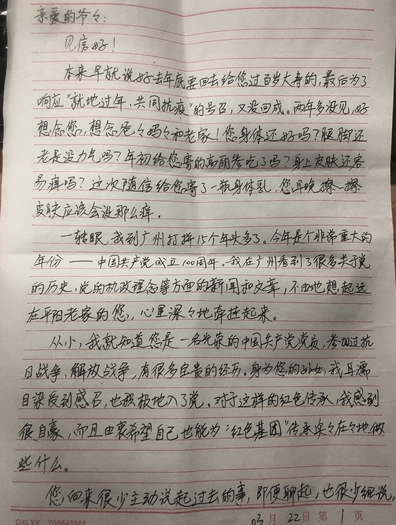 亲爱的爷々:
见信好!
本来早就说好去年底要回去给您过百岁大寿的,最后为了
响应“就地过年,共同抗疫”的号召,又没回成。两年多没见,好
想念您,想念爸々妈々和老家!您身体还好吗?腿脚还
老是没力气吗?年初给您寄的高丽参吃了吗?身上皮肤还容
易痒吗?这次随信给您寄了一瓶身体乳,您早晚擦一擦
皮肤应该会没那么痒。
一转眼,我到广州打拼15个年头多了。今年是个非常重大的
年份——中国共产党成立100周年。我在广州看到了很多关于党
的历史,党的执政理念等方面的新闻和文章,不由地想起远
在平阳老家的您,心里深々地牵挂起来。
从小,我就知道您是一名光荣的中国共产党党员,参加过抗
日战争,解放战争,有很多宝贵的经历。身为您的孙女,我耳濡
目染受到感召,也积极地入了党。对于这样的红色传承,我感到
很自豪,而且由衷希望自己也能为“红色基因”传承实々在々地做
些什么。
您向来很少主动说起过去的事,即便聊起,也很少细说,
03月22日 第1页